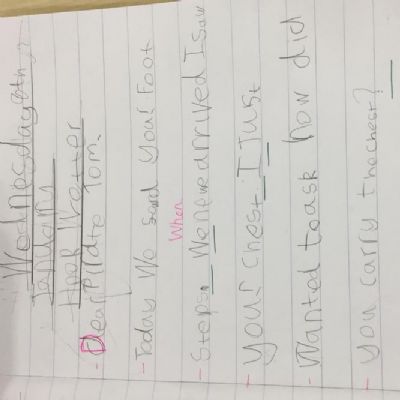 Wednesday 8th,
Janury
Hook letter
Dear Pirate Tom.
Today We sawd your Foot
When
Steps. We newe arrived I saw
your chest I Just
Wanted to ask how did
you carry the chest?